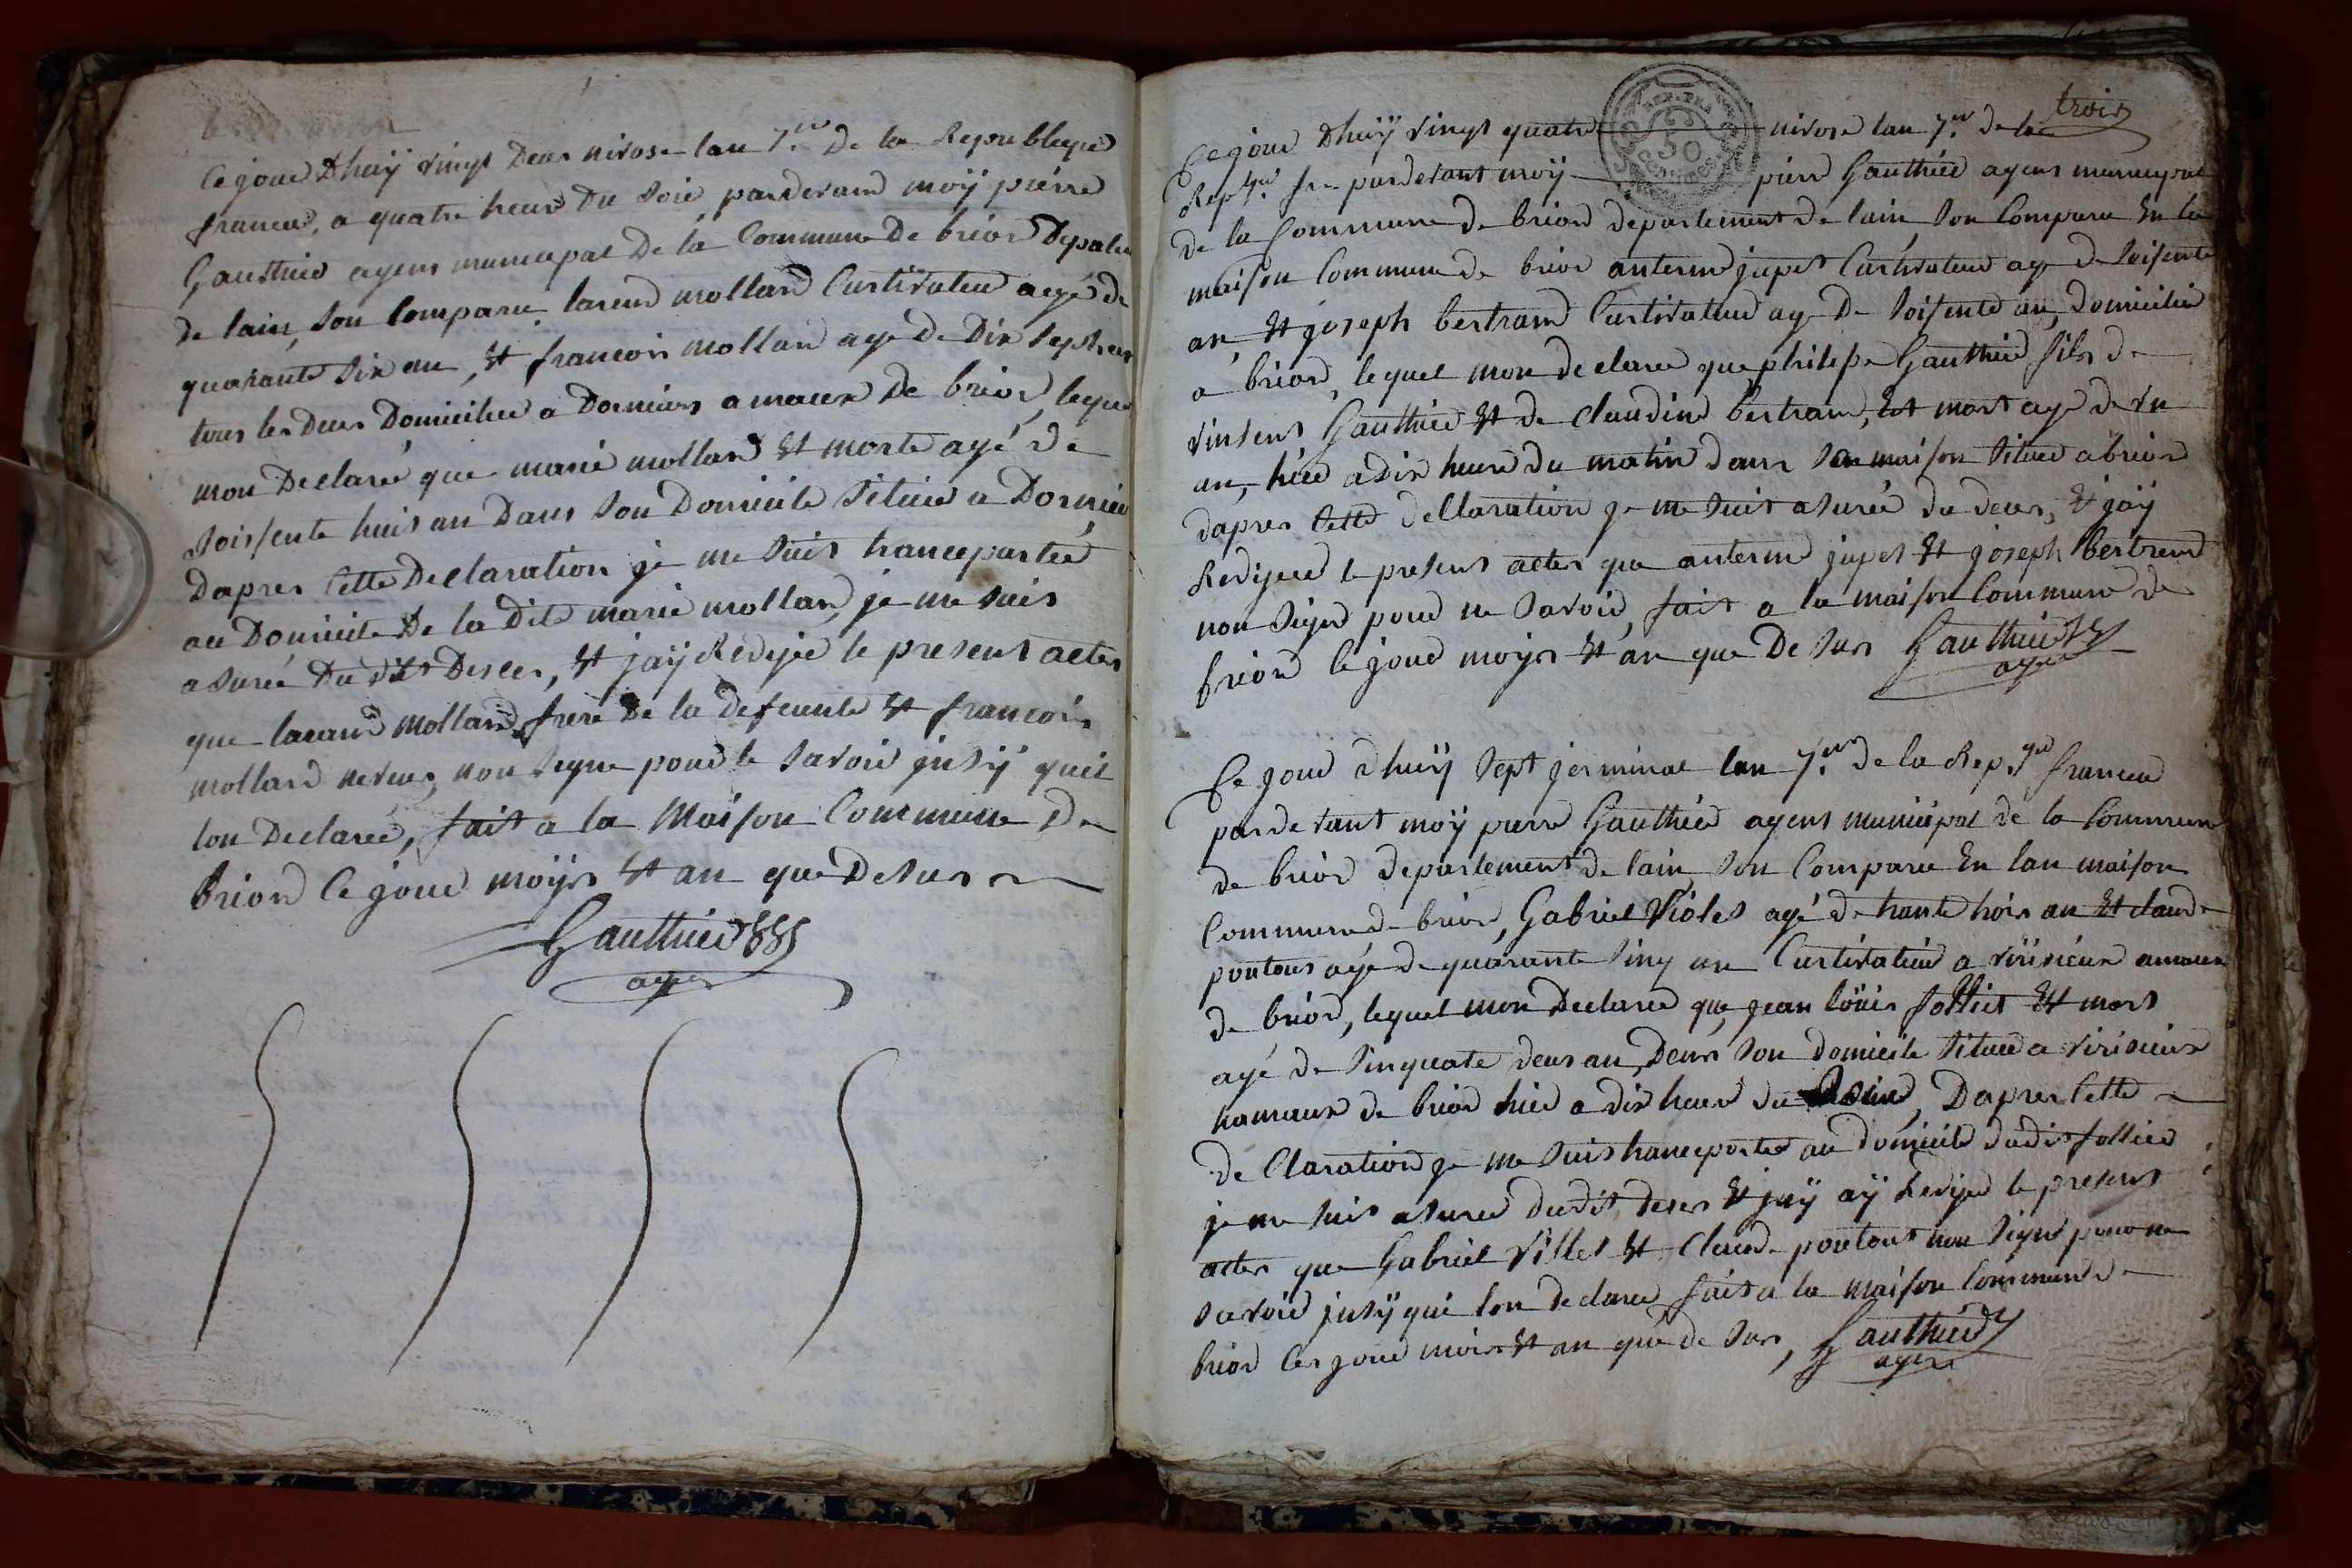 Ce jour Dhuÿ vingt Deus nivose lan 7.me De la Republeque
francue, a quatre heur Du soir pardevand moÿ piérre
Gauthier agens municipal De la Commune De brior Depale
de lain, son Comparu larend mollard Curtivateur agé de
quarante six an, Et francois mollard agé De Dix sept an
tous les Deus Domicilie a Dornieus amaux De brior, lequel
mon Declaré que marie mollard Et morte agé de
soissente huis an Dans son Domicile Situe a Dornieu
Dapres Cette Declaration je me suis trancportée
au Domicile De la Dite marie mollard, je me suis
asurée Du dit Desces, Et jaÿ Redijee le presens actes
que larand Mollard frere De la defeunte Et francois
mollard neveu, non signe pour le savoir jnsÿ quil
lon Declareé, fait a la Maison Commune De
Briord Ce jour moÿs Et an que Desus
Gauthier
agen
trois
REP. FRA.
50
CENTIMES
Ce jour Dhuÿ vingt quatre nivose lan 7.me de la
Rep.que fr. pardevant moÿ pierr Gauthier agens municipal
de la Commune de briord departement de lain, son Comparu En la
maison Commune de brior anterme jupet Curtivateur agé de soisente
an, Et joseph bertrand Curtivateur agé De soisente an, domicilié
a briord, lequel mon declaree que philipe Gauthier fils de
vinsens Gauthier Et de claudine bertrand, Est mort agé de vn
an, hier a Dix heure du matin dans sa maison situee a briord
dapres Cette dellaration je me suis asurée du deces, Et jaÿ
Redijeed le presens actes que anterme jupet Et joseph bertrend
non signe pour ne savoir, fait a la maison Commune de
briord le jour moÿs Et an que De sus Gauthier
agen
Ce jour dhuÿ Sept jerminal lan 7.me de la Rep.que francue
par devant moÿ pierre Gauthier agens municipal de la Commune
de brior departement de lain, son Comparu En lan maison
Commune de brior, Gabriel Violet agé de trante trois an Et claude
pontous agé de quarante sinq an Curtivateur a virisieux amaux
de briord, lequel mon Declaree que jean loüis follict Et mort
agé de sinquate deus an, Dans son domicile situee a virisieux
hamaux de briord hier a dix heure du soir, Dapres Cette
de Claration je me suis trancportee au domicile dudit follier
je me suis asuree dudit deses Et jaÿ aÿ Redijee le presens
actes que Gabriel Villet Et Claude pontout non signe pour ne
savoir jnsÿ que lon declaree fait a la maison Commune de
briord les jour mois Et an que de sus, Gauthier
agen